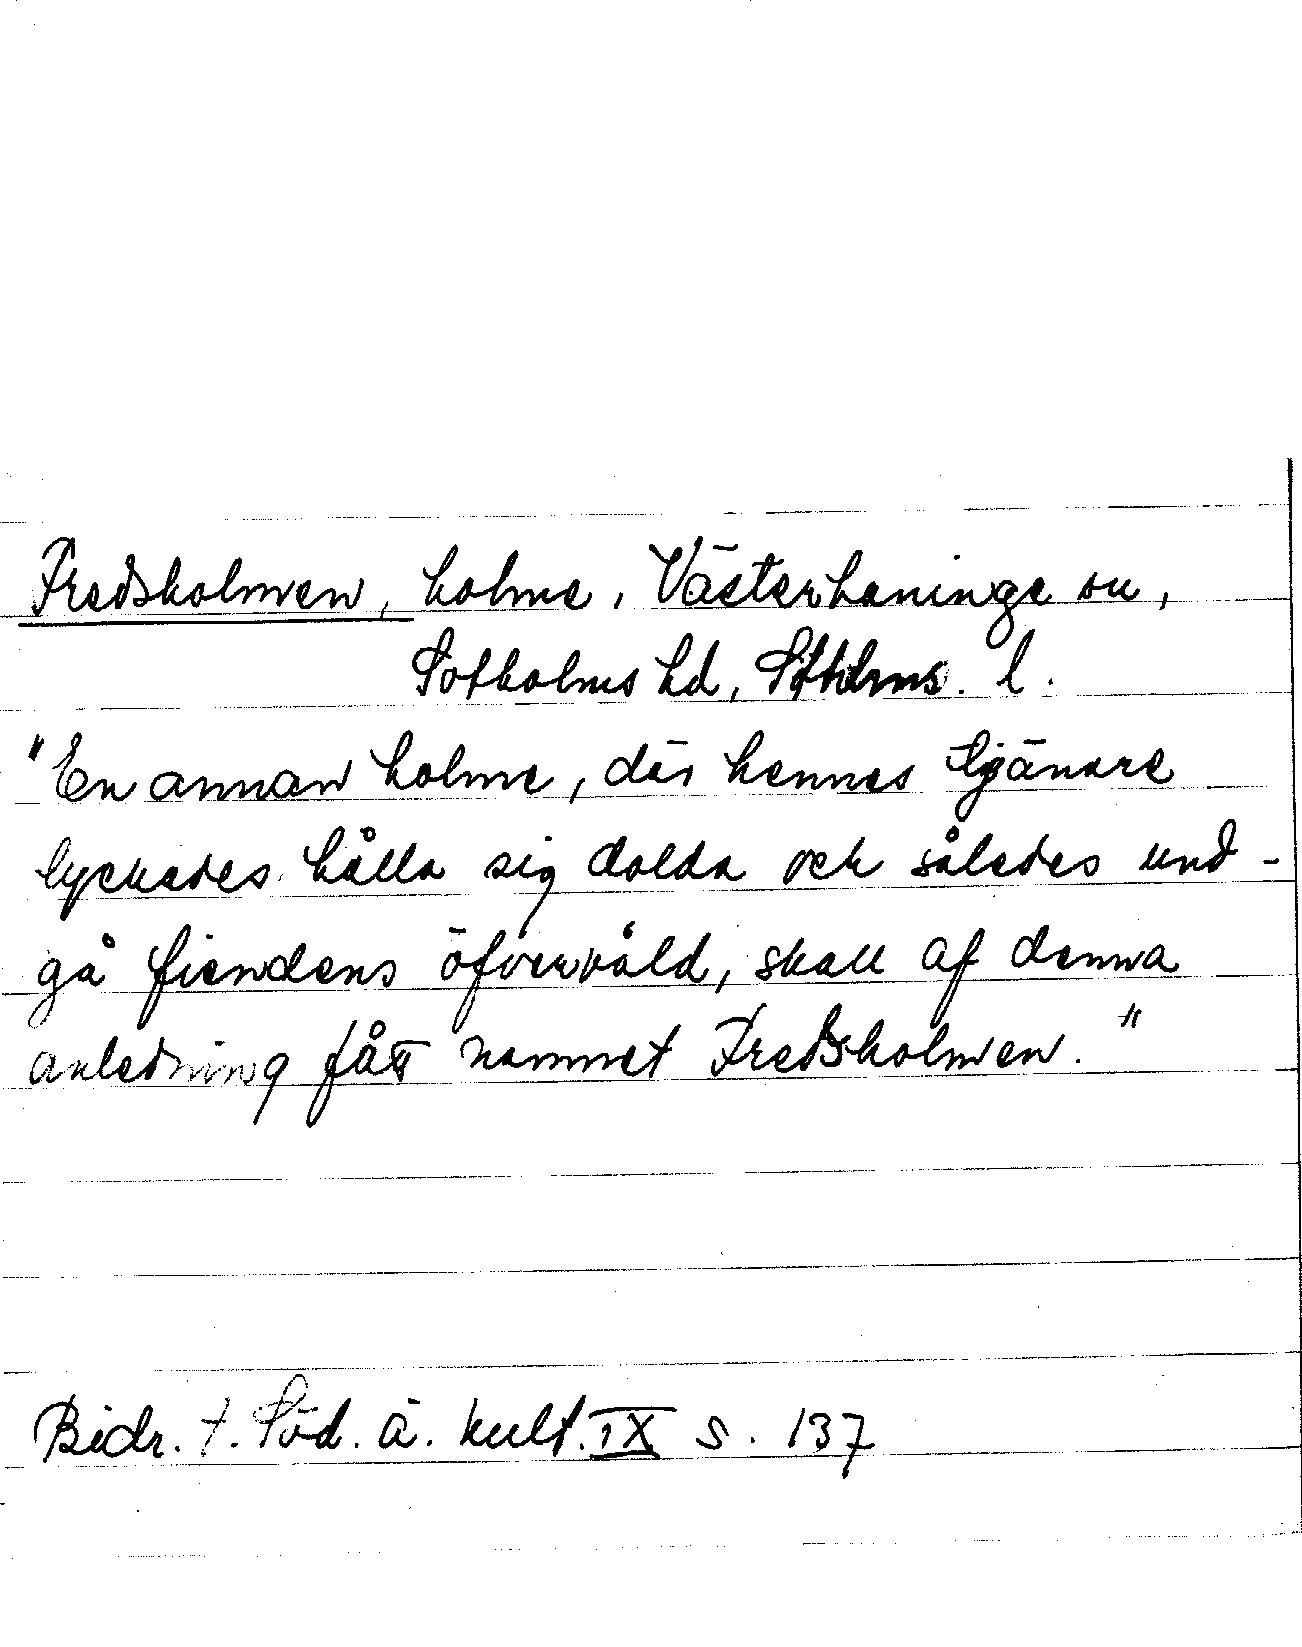 Fredsholmen, holme, Västerhaninge sn,
Sotholms hd, Sthlms. l.
"En annan holme, där hennes tjänare
lyckades hålla sig dolda och således und-
gå fiendens öfvervåld, skall af denna
anledning fått namnet Fredsholmen."
Bidr. t. Söd. ä. kult. IX s. 137